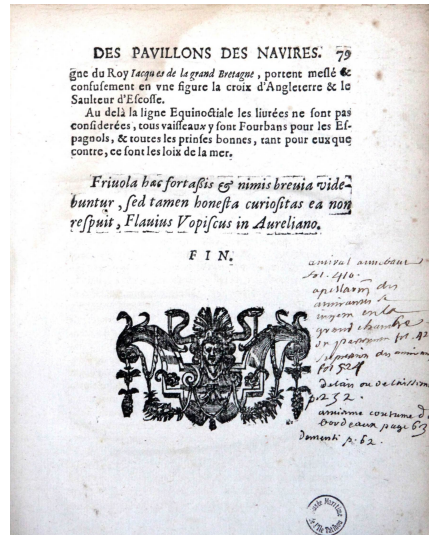 DES PAVILLONS DES NAVIRES. 79
gne du Roy Iacques de la grand Bretagne, portent meslé &
confusement en vne figure la croix d'Angleterre & le
Saulteur d'Escosse.
Au delà la ligne Equinoctiale les liurées ne sont pas
considerées, tous vaisseaux y sont Fourbans pour les Es-
pagnols, & toutes les prinses bonnes, tant pour eux que
contre, ce sont les loix de la mer.
Friuola hæc fortassis & nimis breuia vide-
buntur, sed tamen honesta curiositas ea non
respuit, Flauius Vopiscus in Aureliano.
FIN.
amiral
fol. 410.
des
en la
grand chambre
fol. 42
des
fol 524
delais ou delaissem
p. 232.
coutume d
bordeaux page 603
dementi p. 62.